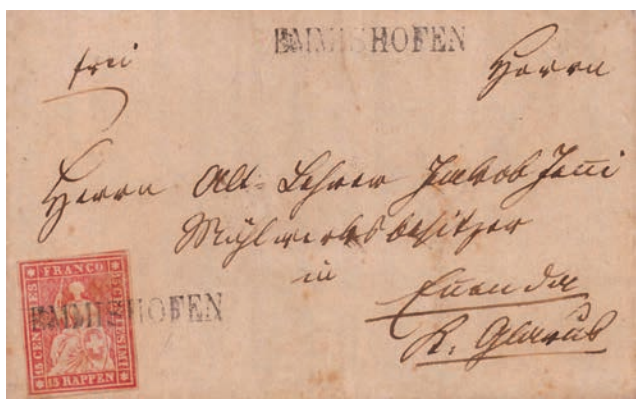 frei
EMMISHOFEN
Herrn
Herrn Alt-Lehrer Jakob Jenni
Mühlwerksbesitzer
in
Ennenda
K. Glarus
FRANCO
15 CENTES
15 RAPPEN
EMMISHOFEN